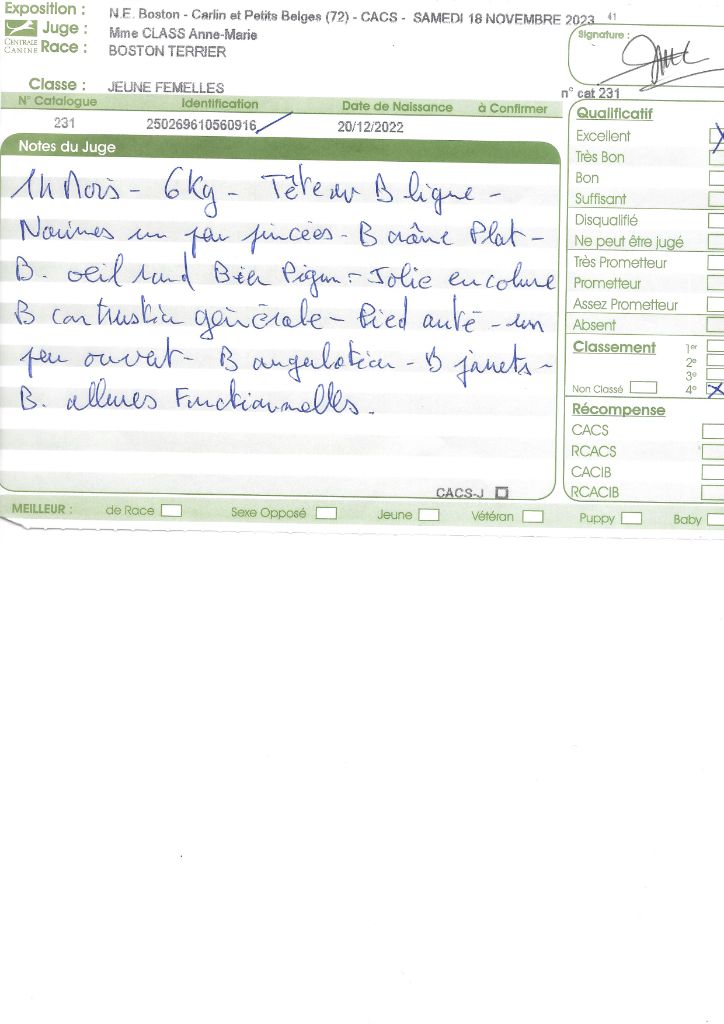 Exposition : N.E. Boston - Carlin et Petits Belges (72) - CACS - SAMEDI 18 NOVEMBRE 2023 41
Juge : Mme CLASS Anne-Marie
CENTRALE CANINE
Race : BOSTON TERRIER
Signature :
Classe : JEUNE FEMELLES
n° cat 231
N° Catalogue Identification Date de Naissance à Confirmer
231 250269610560916 20/12/2022
Notes du Juge
11 Mois - 6 Kg - Tête B ligne -
Narines un peu pincées - B crâne Plat -
B. oeil rond Bien Pigm - Jolie encolure
B construction générale - Pied - un
peu ouvert - B angulation - B jarrets -
B. allures Fonctionnelles.
CACS-J
Qualificatif
Excellent
Très Bon
Bon
Suffisant
Disqualifié
Ne peut être jugé
Très Prometteur
Prometteur
Assez Prometteur
Absent
Classement 1er
2e
3e
Non Classé 4e
Récompense
CACS
RCACS
CACIB
RCACIB
MEILLEUR : de Race Sexe Opposé Jeune Vétéran Puppy Baby